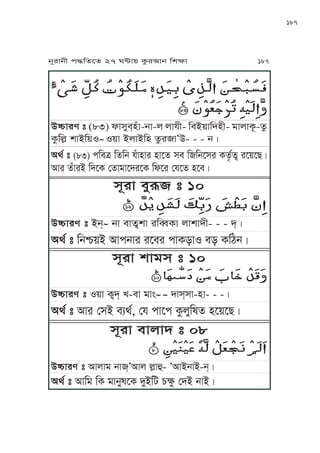 ১৮৭
নূরানী পদ্ধতিতে ২৭ ঘন্টায় কুরআন শিক্ষা ১৮৭
فَسُبْحٰنَ الَّذِىْ بِيَدِهٖ مَلَكُوْتُ كُلِّ شَىْءٍ
وَّاِلَيْهِ تُرْجَعُوْنَ
উচ্চারণ ঃ (৮৩) ফাসুব্‌হাঁ-না-ল লাযী- বিইয়াদিহী- মালাকূ-তু
কুল্লি শাইয়িও~ ওয়া ইলাইহি তুরজা'ঊ- - - ন।
অর্থ ঃ (৮৩) পবিত্র তিনি যাঁহার হাতে সব জিনিসের কর্তৃত্ব রয়েছে।
আর তাঁরই দিকে তোমাদেরকে ফিরে যেতে হবে।
সূরা বুরূজ ঃ ১০
اِنَّ بَطْشَ رَبِّكَ لَشَدِيْدٌ
উচ্চারণ ঃ ইন্~ না বাত্বশা রব্বিকা লাশাদী- - - দ্।
অর্থ ঃ নিশ্চয়ই আপনার রবের পাকড়াও বড় কঠিন।
সূরা শামস ঃ ১০
وَقَدْ خَابَ مَنْ دَسّٰىهَا
উচ্চারণ ঃ ওয়া কুদ্ খ-বা মাং~~ দাস্‌সা-হা- - -।
অর্থ ঃ আর সেই ব্যর্থ, যে পাপে কুলুষিত হয়েছে।
সূরা বালাদ ঃ ০৮
اَلَمْ نَجْعَلْ لَّهٗ عَيْنَيْنِ
উচ্চারণ ঃ আলাম নাজ্'আল ল্লাহূ- 'আইনাই-ন্।
অর্থ ঃ আমি কি মানুষকে দুইটি চক্ষু দেই নাই।